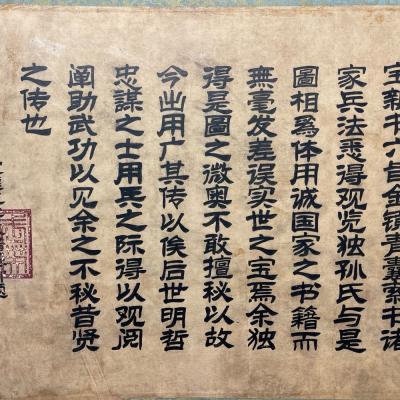 宝新书六金镜青囊素书诸
家兵法悉得观览独孙氏与是
圖相為体用诚国家之书籍而
無毫发差误实世之宝焉余独
得是圖之微奥不敢擅秘以故
今出用广其传以俟后世明哲
忠謀之士用兵之际得以观阅
阐助武功以见余之不秘昔贤
之传也